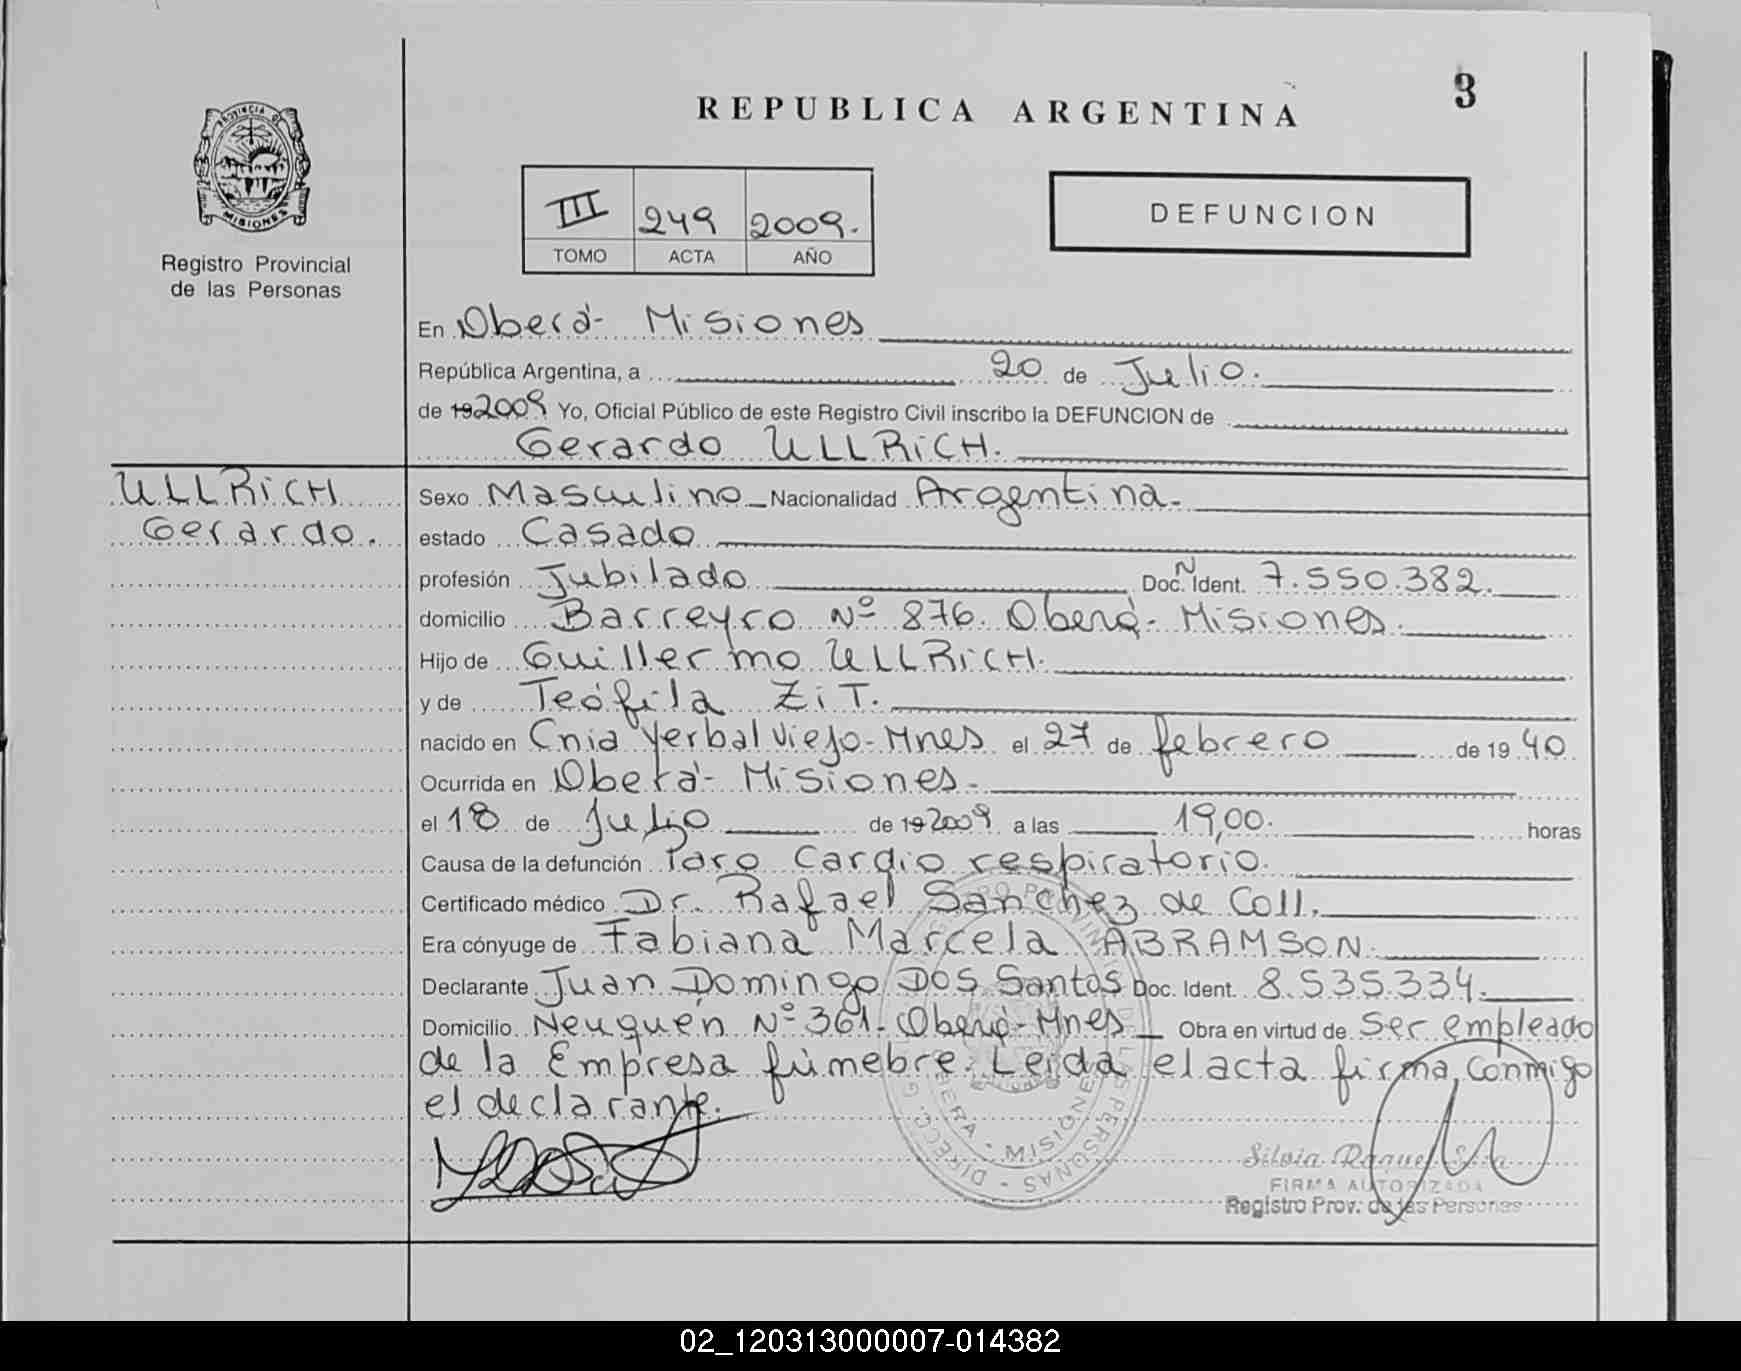 3
REPUBLICA ARGENTINA
PROVINCIA DE
MISIONES
Registro Provincial
de las Personas
III 249 2009.
TOMO ACTA AÑO
DEFUNCION
En Oberá- Misiones
República Argentina, a 20 de Julio.
de 19 2009 Yo, Oficial Público de este Registro Civil inscribo la DEFUNCION de
Gerardo ULLRiCH.
ULLRiCH
Gerardo.
Sexo Masculino Nacionalidad Argentina.
estado Casado
profesión Jubilado Doc. N Ident. 7.550.382.
domicilio Barreyro Nº 876. Oberá- Misiones.
Hijo de Guillermo ULLRiCH.
y de Teófila ZiT.
nacido en Cnia Yerbal Viejo- Mnes el 27 de febrero de 19 40
Ocurrida en Oberá- Misiones.
el 18 de Julio de 19 2009 a las 19,00. horas
Causa de la defunción Paro Cardio respiratorio.
Certificado médico Dr. Rafael Sanchez de Coll.
Era cónyuge de Fabiana Marcela ABRAMSON.
Declarante Juan Domingo DOS Santos Doc. Ident. 8.535.334.
Domicilio Neuquén Nº 361- Oberá- Mnes Obra en virtud de Ser empleado
de la Empresa fúnebre. Leída el acta firma conmigo
el declarante.
OBERA - MISIONES
DIRECC. G PERSONAS
Silvia Raquel
FIRMA AUTORIZADA
Registro Prov. de las Personas
02_120313000007-014382